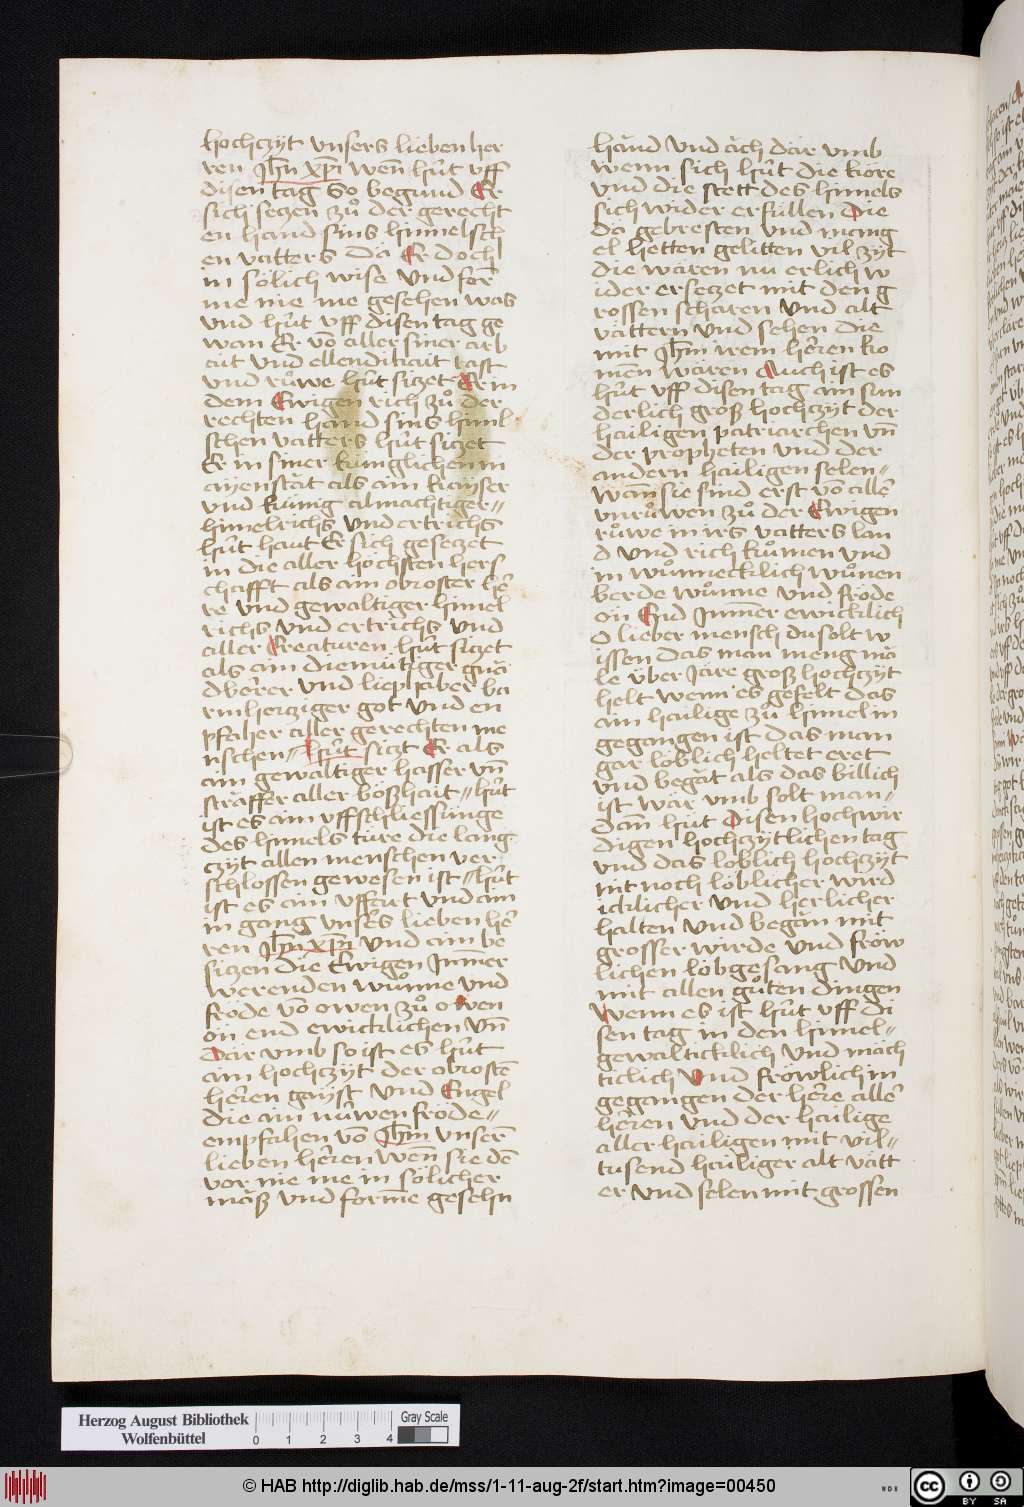 hochzÿt vnsers lieben her
ren Jhu̅ xp̅i wen̅ hu̍t vff
disen tag So begund Er
sich seczen zů der gerecht
en hand sins himelsch
en vatters Da Er doch
in sölich wise vnd for
me nie me gesehen was
vnd hu̍t vff disen tag ge
wan Er vo̅ aller siner arb
ait vnd ellendikait rast
vnd ru̍we hu̍t siczet Er in
dem Ewigen rich zů der
rechten hand sins himl
schen vatters hu̍t siczet
Er in siner ku̍nglichen m
aÿenstät als ain kaÿser
vnd ku̍nig almächtiger
himelrichs vnd ertrichs
hu̍t haut Er sich geseczet
in die aller höchsten hers
chafft als ain obroster he̅
re vnd gewaltiger himel
richs vnd ertrichs vnd
aller Creaturen hu̍t siczet
als ain diemütiger gnä
dherer vnd liephaber ba
rmhercziger got vnd en
pfaher aller gerechten me
nschen hu̍t siczt Er als
ain gewaltiger hasser vn̅
straffer aller boßhait hu̍t
ist es ain vffschliessunge
des himels türe die lang
czÿt allen menschen ver
schlossen gewesen ist hu̍t
ist es ain vffart vnd ain
in gang vnsers lieben her
ren Jhu̅ xp̅i vnd ain be
siczen die Ewigen Jm̅er
werenden wůnne vnd
fröde vo̅ owen zů owen
ön end ewicklichen vn̅
Dar vmb so ist es hu̍t
ain hochzÿt der obroste̅
heren gaÿst vnd Engel
die ain nu̍wen fröde
empfahen vo̅ Jhm̅ vnser̅
lieben heren wen̅ sie de̅
vor nie me in sölicher
mäß vnd forme gesehn
händ vnd äch dar vmb
wenn sich hu̍t die köre
vnd die stett des himels
sich wider erfüllen Die
da gebresten vnd mang
el hetten gelitten vil zÿt
die wären nu erlich w
ider erseczet mit den g
rossen scharen vnd alt
vättern vnd sehen die
mit Jhm̅ irem heren ko
men wären Auch ist es
hu̍t vff disen tag ain sun
derlich groß hochzÿt der
hailigen patriarchen vn̅
der propheten vnd der
andern hailigen selen
wan sie sind erst vo̅ alle̅
vnru̍wen zů der Ewigen
ru̍we in irs vatters lan
d vnd rich kumen vnd
in wůnnecklich wůnen
berde wůnne vnd fröde
ön End Jm̅er ewicklich
O lieber mensch du solt w
issen das man meng mä
le über Järe groß hochzÿt
helt wenn es gefelt das
ain hailige zů himel in
gegangen ist das man
gar löblich heltet eret
vnd begät als das billich
ist war vmb solt man
dan̅ hu̍t Disen hochwir
digen hochzÿtlichen tag
vnd das löblich hochzÿt
nit noch löblicher wird
icklicher vnd herlicher
halten vnd begän mit
grosser wirde vnd fröw
lichen lobgesang vnd
mit allen gůten dingen
Wenn es ist hu̍t vff di
sen tag in den himel
gewalticklich vnd mäch
ticlich Vnd fröwlich in
gegangen der here aller
heren vnd der hailige
aller hailigen mit vil
tusend hailiger alt vätt
er vnd selen mit grossen
Herzog August Bibliothek
Wolfenbüttel
0 1 2 3 4
Gray Scale
© HAB http://diglib.hab.de/mss/1-11-aug-2f/start.htm?image=00450
cc BY SA